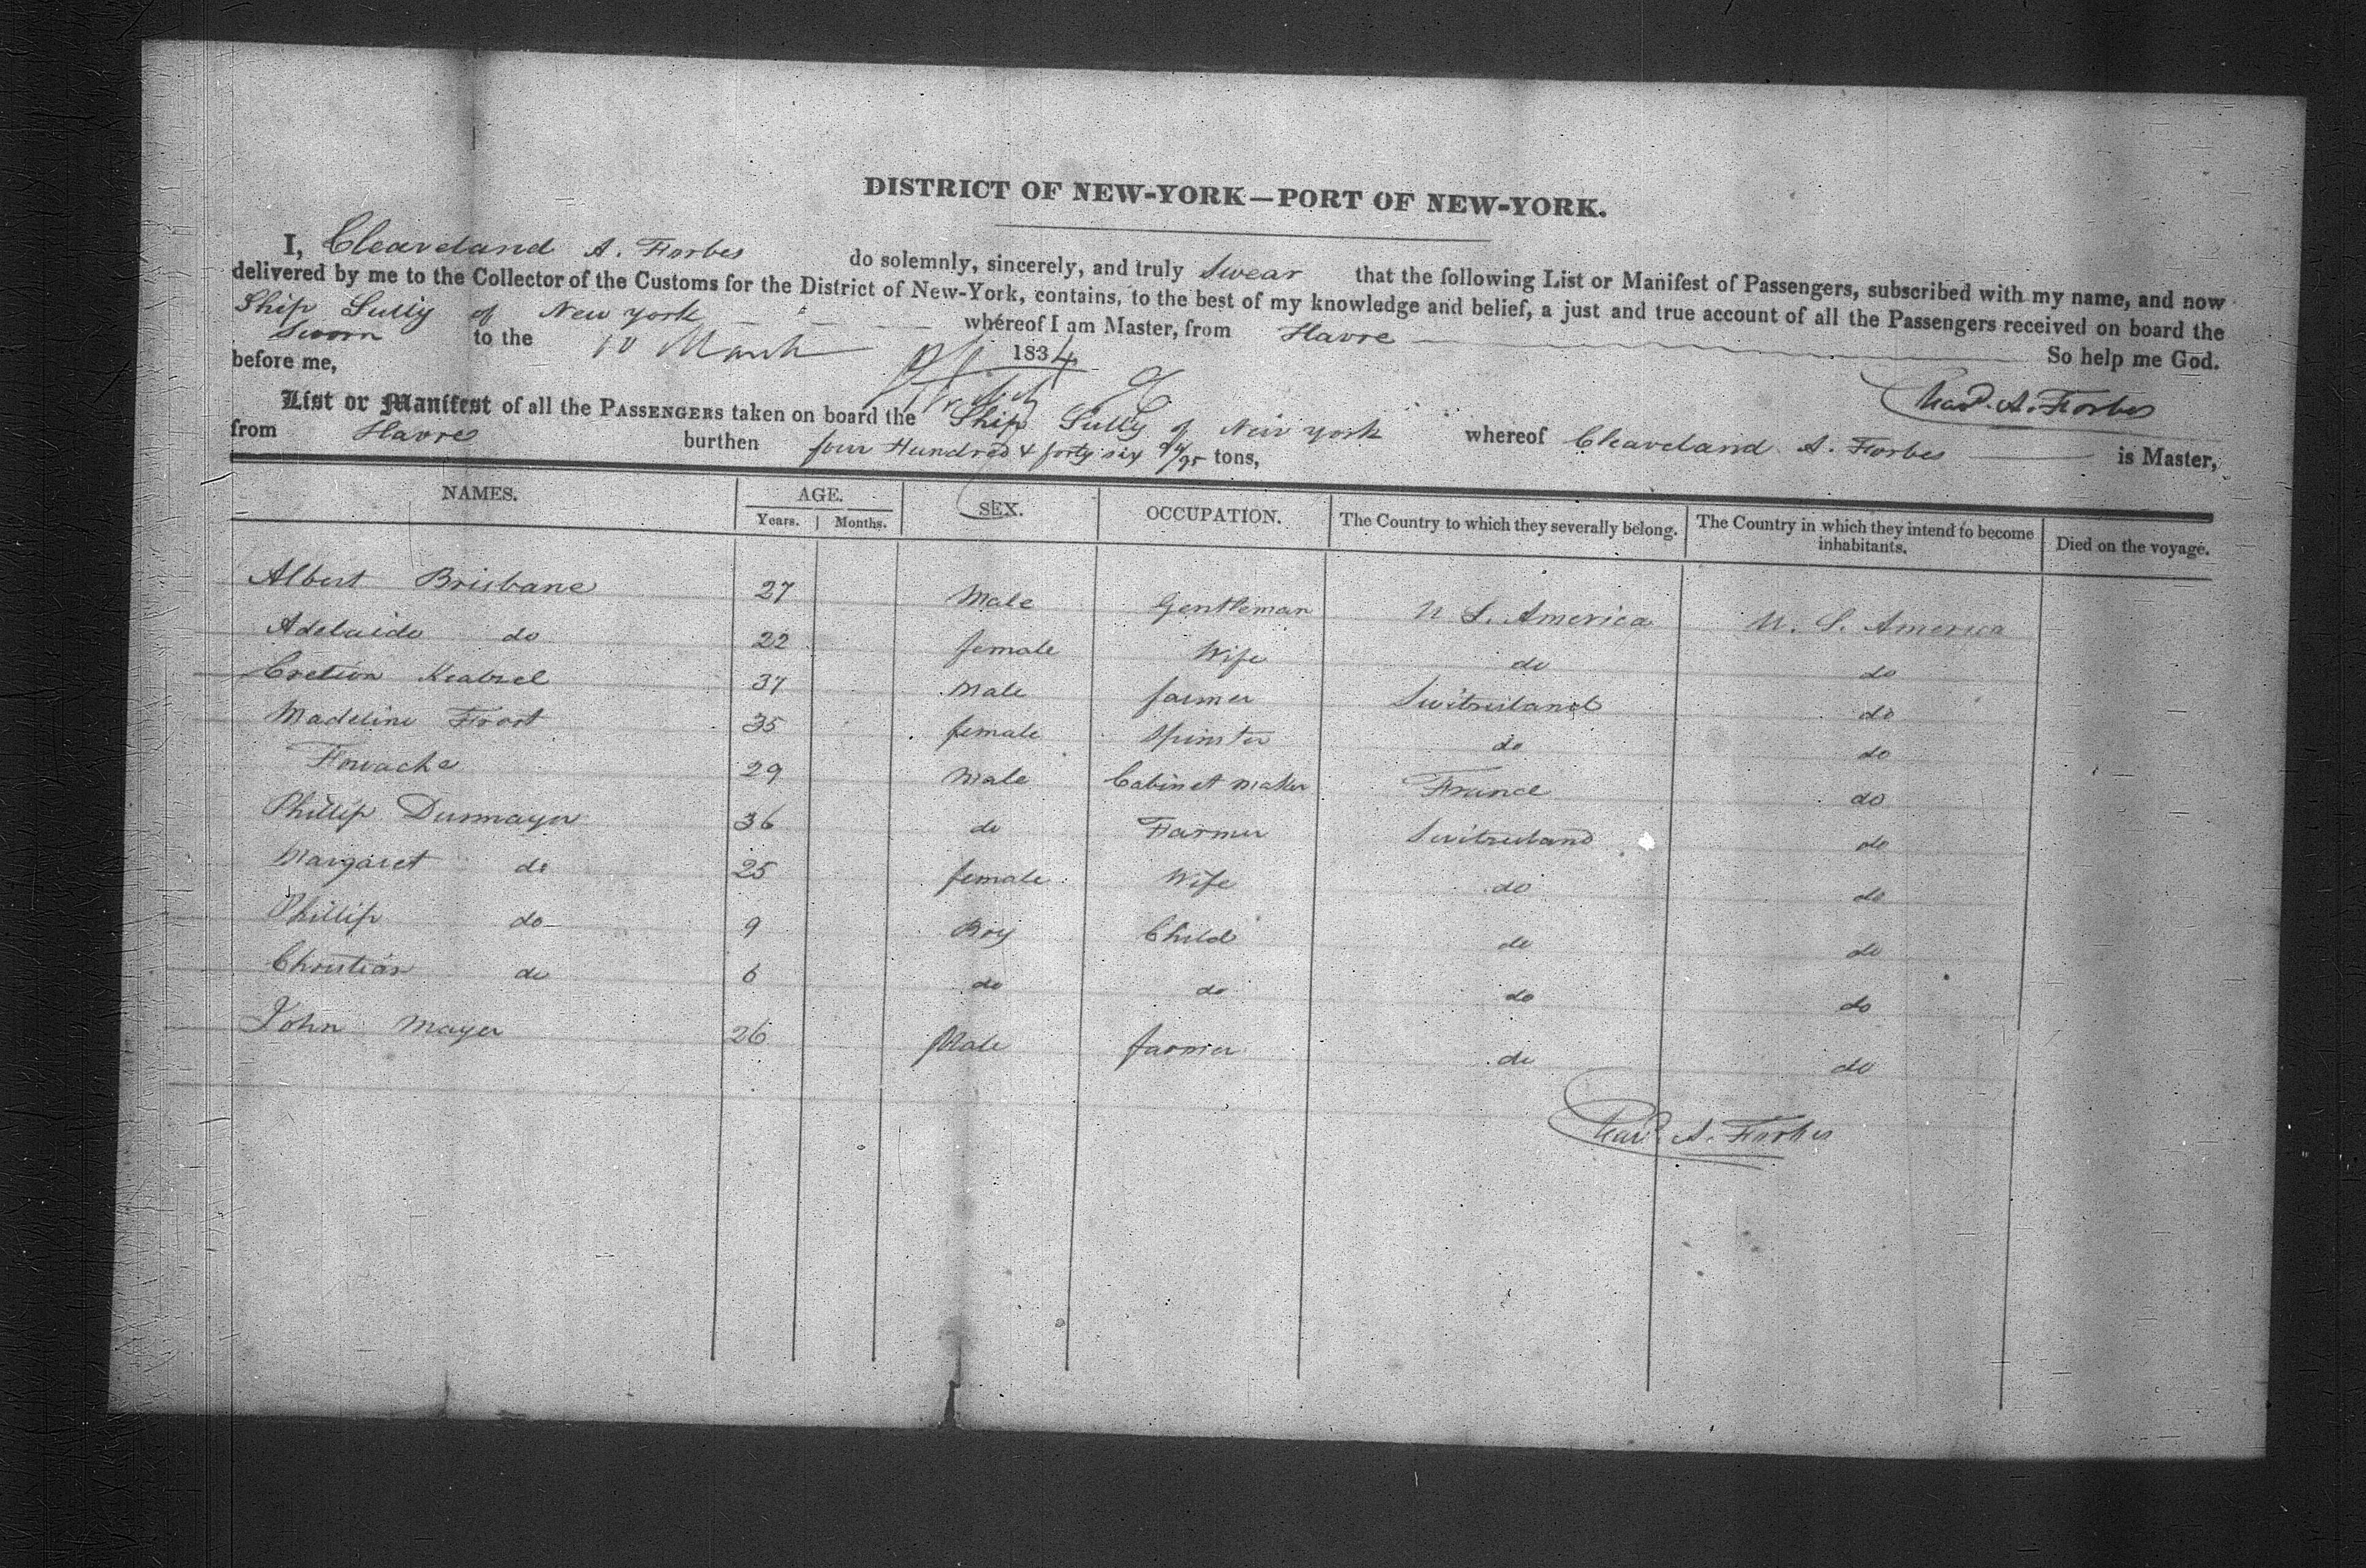 DISTRICT OF NEW-YORK—PORT OF NEW-YORK.
I, Cleaveland A. Forbes do solemnly, sincerely, and truly Swear that the following List or Manifest of Passengers, subscribed with my name, and now
delivered by me to the Collector of the Customs for the District of New-York, contains, to the best of my knowledge and belief, a just and true account of all the Passengers received on board the
Ship Sully of New york whereof I am Master, from Havre So help me God.
Sworn to the 10 March 1834
before me,
Cleavd. A. Forbes
List or Manifest of all the PASSENGERS taken on board the Ship Sully of New york whereof Cleaveland A. Forbes is Master,
from Havre burthen four Hundred & forty six 94/95 tons,
NAMES. AGE. SEX. OCCUPATION. The Country to which they severally belong. The Country in which they intend to become inhabitants. Died on the voyage.
Years. Months.
Albert Brisbane 27 Male Gentleman U S. America U. S. America
Adelaide do 22 female Wife do do
37 Male farmer Switzerland do
Madeline Froot 35 female Spinster do do
29 Male Cabinet maker France do
Phillip Durmayer 36 do Farmer Switzerland do
Margaret do 25 female Wife do do
Phillip do 9 Boy Child do do
Christian do 6 do do do do
John Mayer 26 Male farmer do do
Cleavd. A. Forbes